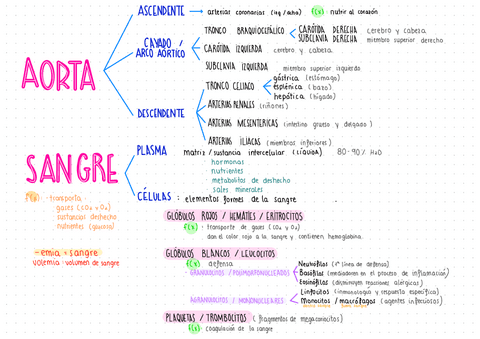 AORTA
ASCENDENTE → arterias coronarias (izq / dcha) f(x) nutrir al corazón
CAYADO /
ARCO AÓRTICO
TRONCO BRAQUIOCEFÁLICO
CARÓTIDA DERECHA cerebro y cabeza
SUBCLAVIA DERECHA miembro superior derecho
CARÓTIDA IZQUIERDA cerebro y cabeza
SUBCLAVIA IZQUIERDA miembro superior izquierdo
DESCENDENTE
TRONCO CELIACO
gástrica (estómago)
esplénica (bazo)
hepática (hígado)
ARTERIAS RENALES (riñones)
ARTERIAS MESENTERICAS (intestino grueso y delgado)
ARTERIAS ILÍACAS (miembros inferiores)
SANGRE
f(x) · transporta:
gases (CO2 y O2)
sustancias deshecho
nutrientes (glucosa)
-emia = sangre
volemia: volumen de sangre
PLASMA matriz / sustancia intercelular (líquida) 80-90% H2O
· hormonas
· nutrientes
· metabolitos de deshecho
· sales minerales
CÉLULAS: elementos formes de la sangre
GLÓBULOS ROJOS / HEMATÍES / ERITROCITOS
f(x) · transporte de gases (CO2 y O2)
dan el color rojo a la sangre y contienen hemoglobina.
GLÓBULOS BLANCOS / LEUCOCITOS
f(x) defensa
· GRANULOCITOS / POLIMORFONUCLEADOS
Neutrófilos (1ª línea de defensa)
Basófilos (mediadores en el proceso de inflamación)
Eosinófilos (disminuyen reacciones alérgicas)
AGRANULOCITOS / MONONUCLEARES
Linfocitos (inmunología y respuesta específica)
Monocitos / macrófagos (agentes infecciosos)
PLAQUETAS / TROMBOCITOS (fragmentos de megacariocitos)
f(x) coagulación de la sangre